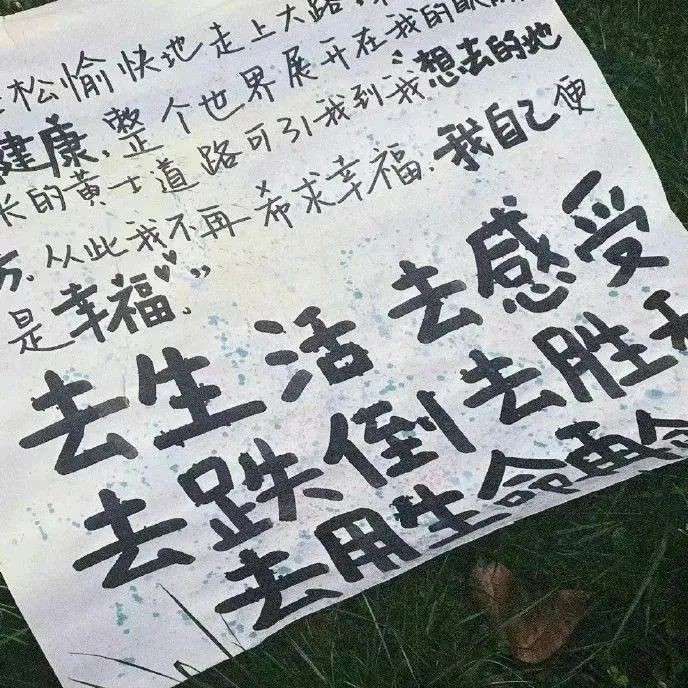 松愉快地走上大路,
健康,整个世界展开在我的眼前
长的黄土道路可引我到我想去的地
方.从此我不再希求幸福.我自己便
是幸福."
去生活 去感受
去跌倒 去胜利
去用生命再